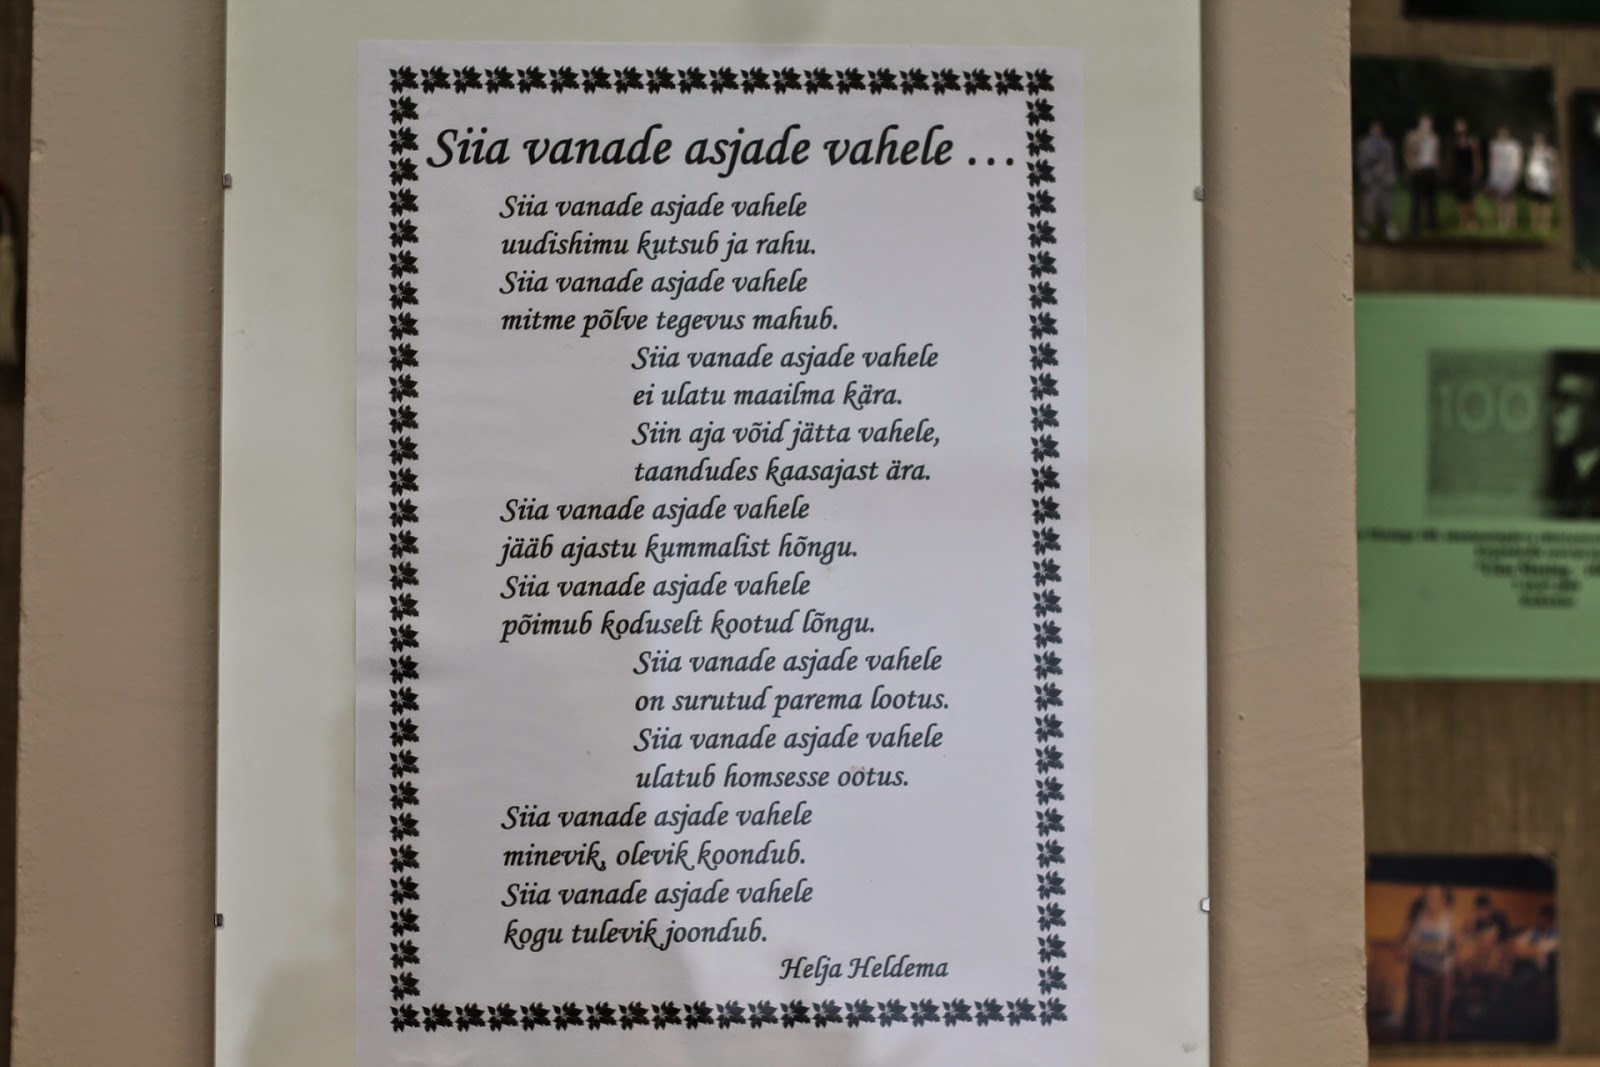 Siia vanade asjade vahele ...
Siia vanade asjade vahele
uudishimu kutsub ja rahu.
Siia vanade asjade vahele
mitme põlve tegevus mahub.
Siia vanade asjade vahele
ei ulatu maailma kära.
Siin aja võid jätta vahele,
taandudes kaasajast ära.
Siia vanade asjade vahele
jääb ajastu kummalist hõngu.
Siia vanade asjade vahele
põimub koduselt kootud lõngu.
Siia vanade asjade vahele
on surutud parema lootus.
Siia vanade asjade vahele
ulatub homsesse ootus.
Siia vanade asjade vahele
minevik, olevik koondub.
Siia vanade asjade vahele
kogu tulevik joondub.
Helja Heldema
100